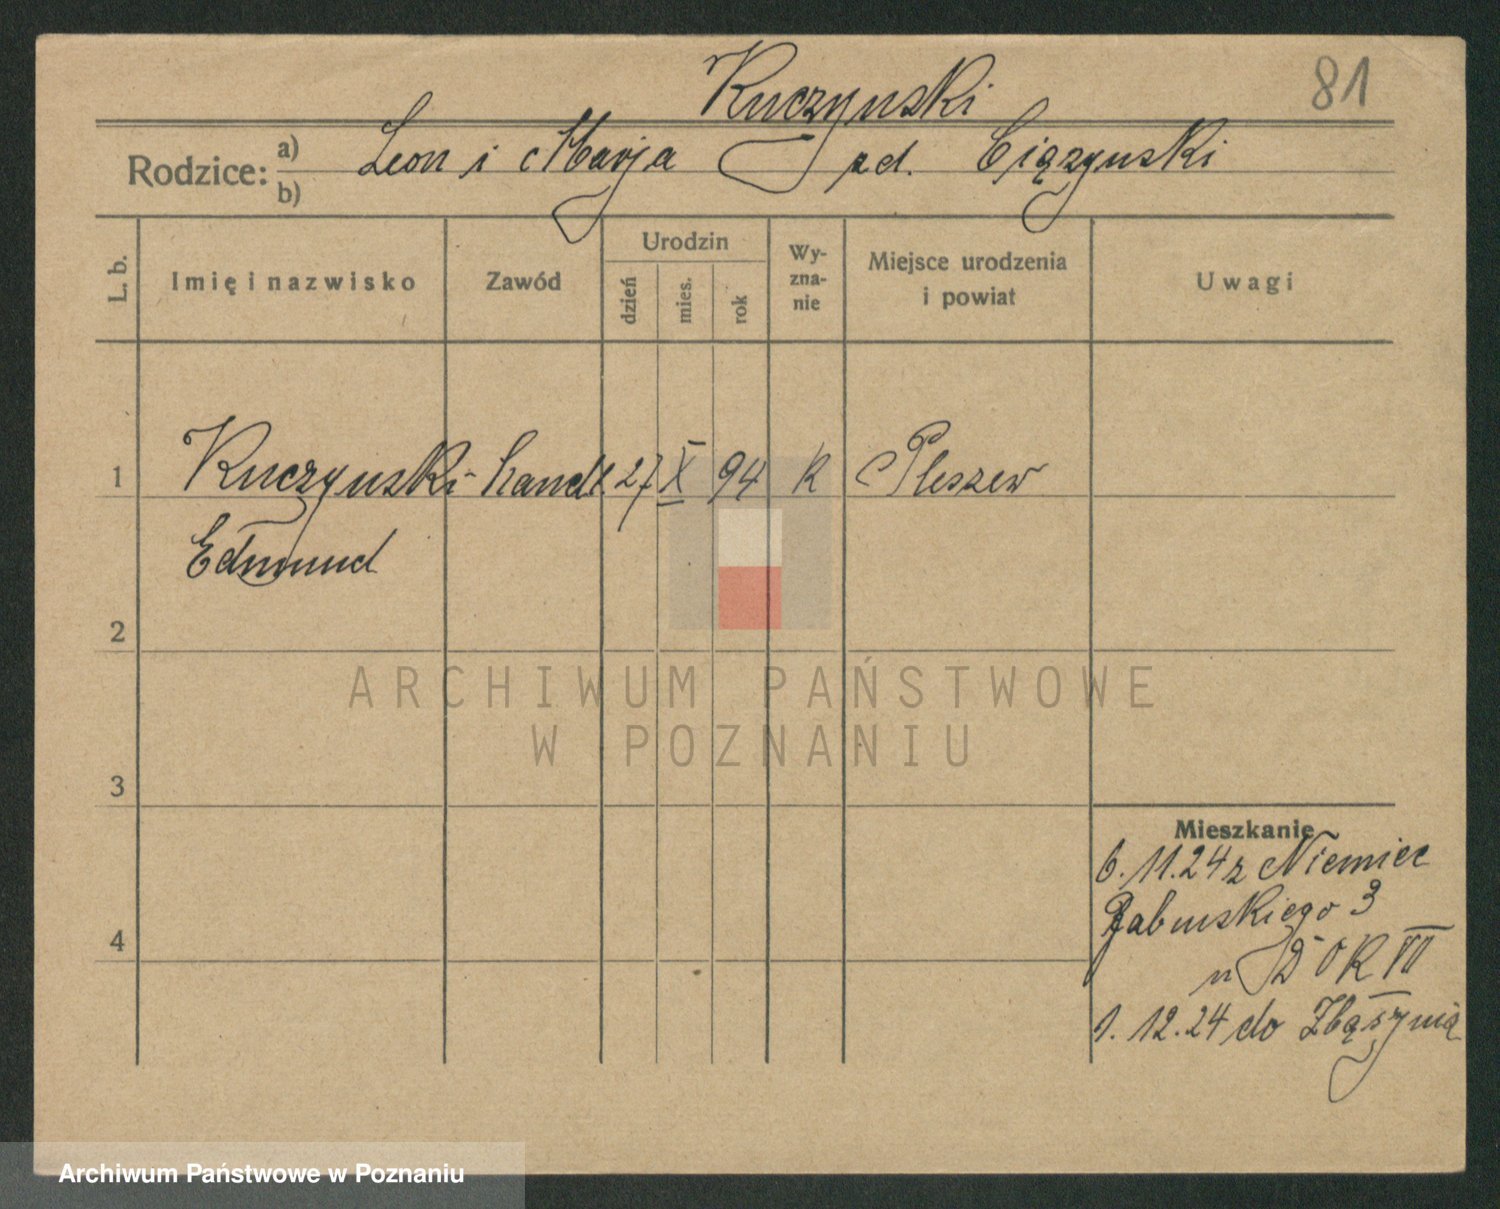 81
Kuczynski
Rodzice: a) Leon i Marja zd. Ciązynski
b)
L. b. Imię i nazwisko Zawód Urodzin dzień mies. rok Wy-zna-nie Miejsce urodzenia i powiat Uwagi
1 Kuczynski handl. 27 X 94 R Pleszew
Edmund
2
3
4
Mieszkanie
6.11.24 z Niemiec
3
DOK VII
1.12.24 do Zbąszynia
ARCHIWUM PAŃSTWOWE
W POZNANIU
Archiwum Państwowe w Poznaniu